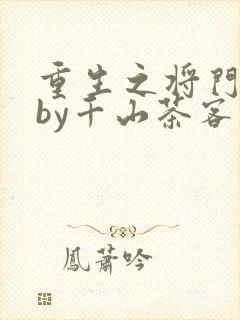 重生之将門
by千山茶客
鳳蕭吟